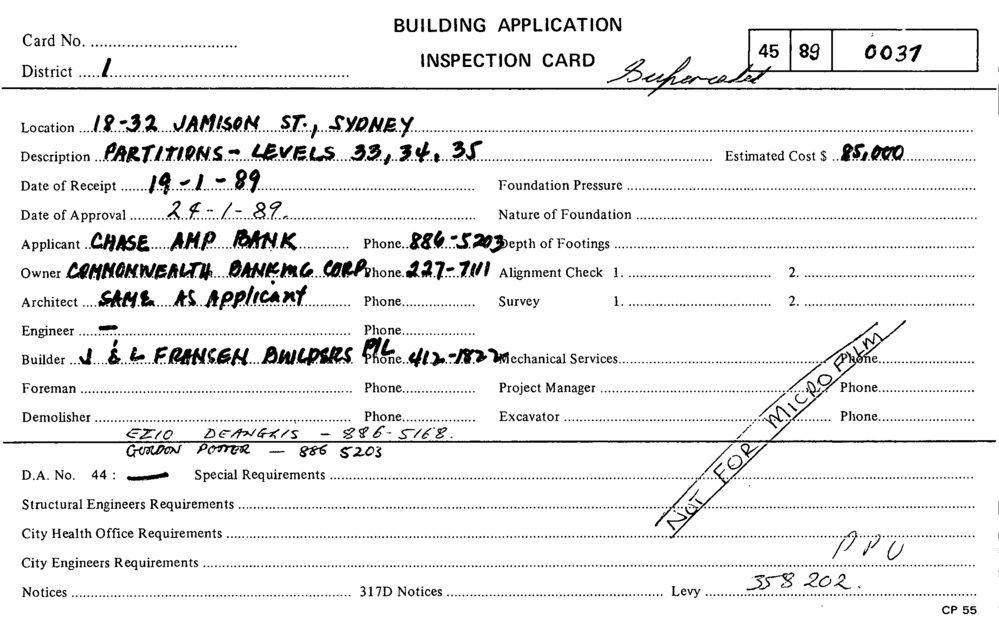 BUILDING APPLICATION
INSPECTION CARD
Card No.
District 1
Superceded
45 89 0037
Location 18-32 JAMISON ST., SYDNEY
Description PARTITIONS - LEVELS 33, 34, 35 Estimated Cost $ 85,000
Date of Receipt 19-1-89 Foundation Pressure
Date of Approval 24-1-89. Nature of Foundation
Applicant CHASE AMP BANK Phone 886-5203 Depth of Footings
Owner COMMONWEALTH BANKING CORP Phone 227-7111 Alignment Check 1. 2.
Architect SAME AS APPlicant Phone Survey 1. 2.
Engineer — Phone
Builder J & L FRANSEN BUILDERS P/L Phone 412-1822 Mechanical Services Phone
Foreman Phone Project Manager Phone
Demolisher Phone Excavator Phone
EZIO DEANGELIS - 886-5168.
GORDON POTTER - 886 5203
NOT FOR MICROFILM
D.A. No. 44 : — Special Requirements
Structural Engineers Requirements
City Health Office Requirements
PPU
City Engineers Requirements
Notices 317D Notices Levy 358 202.
CP 55